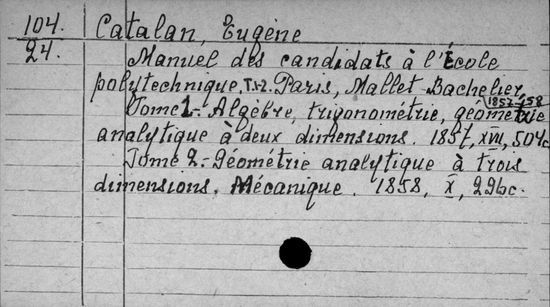 104. Catalan, Eugène
24. Manuel des candidats à l'École
polytechnique. T.1-2. Paris, Mallet-Bachelier,
1857-58
Tome 1.- Algèbre, trigonométrie, géométrie
analytique à deux dimensions. 1857, XVIII, 504c.
Tome 2.- Géométrie analytique à trois
dimensions. Mécanique. 1858, X, 296c.